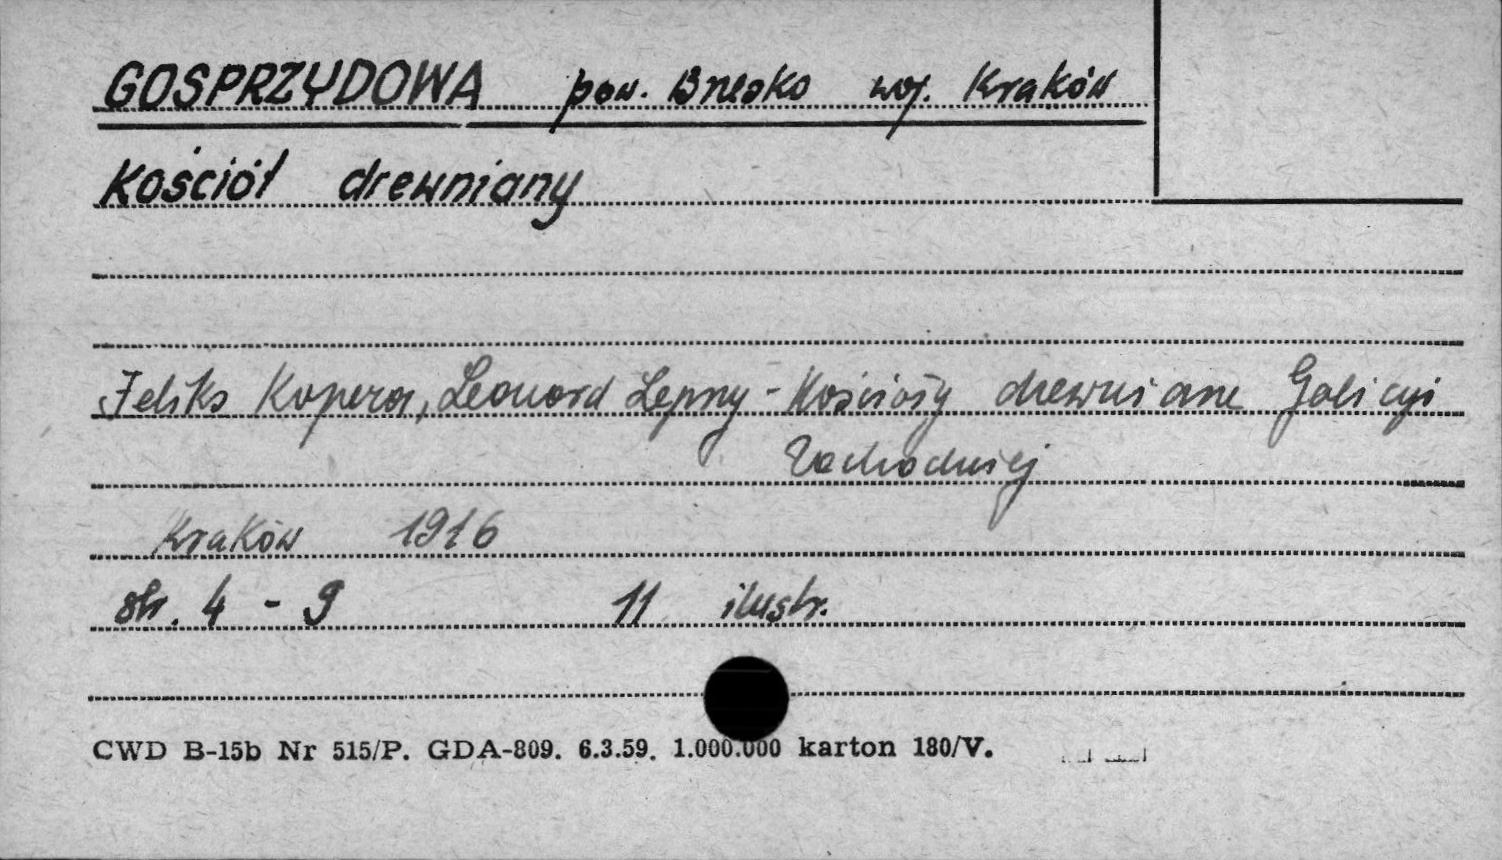 GOSPRZYDOWA pow. Brzesko woj. Kraków
Kościół drewniany
Feliks Kopera, Leonard Lepszy - Kościoły drewniane Galicyi
Zachodniej
Kraków 1916
str. 4 - 9 11 ilustr.
CWD B-15b Nr 515/P. GDA-809. 6.3.59. 1.000.000 karton 180/V.